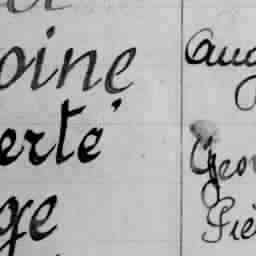 oine
erte
ge
Aug
Geor
Piè